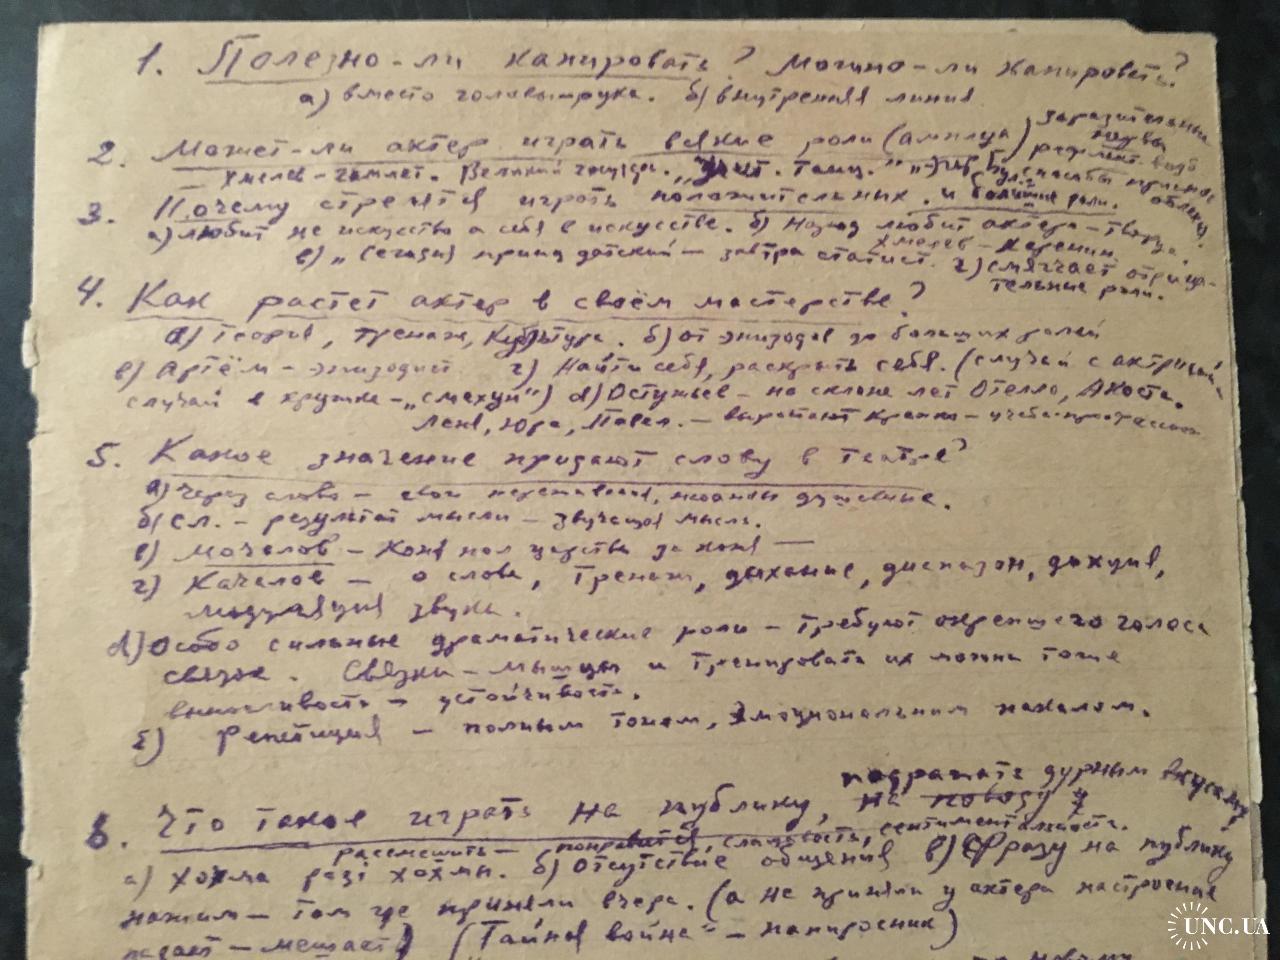 1. Полезно-ли капировать? Можно-ли капировать?
а) вместо головы-рука. б) внутренняя линия
2. Может-ли актер играть всякие роли (амплуа)
заразительные
Хмелев-Гамлет. Великий
3. Почему стремятся играть положительных и большие роли.
а) любит не искусство а себя в искусстве. б) Народ любит актера-творца.
Хмелев - Каренин
в) „Сегодня принц датский - завтра статист. г) смягчает отрица-
тельные роли.
4. Как растет актер в своём мастерстве?
а) Теория, тренаж, Культура. б) от эпизодов до больших ролей
в) Артём - эпизодист г) Найти себя, раскрыть себя. (случай с актрисой
случай в кружке - „смехун") д) Остужев - на склоне лет Отелло, Акоста.
Лена, Юра, Павел. - вырастают
5. Какое значение придают слову в театре?
а) Через слово - свои нюансы душевные.
б) Сл. - результат мысли - звучащая мысль.
в) Мочалов - Коня пол царства за коня —
г) Качалов - о слове, Тренаж, дыхание, диапазон, дикция,
модуляция звука.
д) Особо сильные драматические роли - требуют окрепшего голоса
связок. Связки - мышцы и тренировать их можно тоже
выносливость - устойчивость.
Репетиция - полным тоном, эмоциональным накалом.
подражать дурным вкусам
6. Что такое играть на публику, на поводу у
рассмешить - понравиться, слащавость, сентиментальность.
а) хохма ради хохмы. б) Отсутствие общения в) Фразу на публику
нажим - там где приняли вчера. (а не приняли у актера настроение
падает - мешает) („Тайная война" - папиросник)